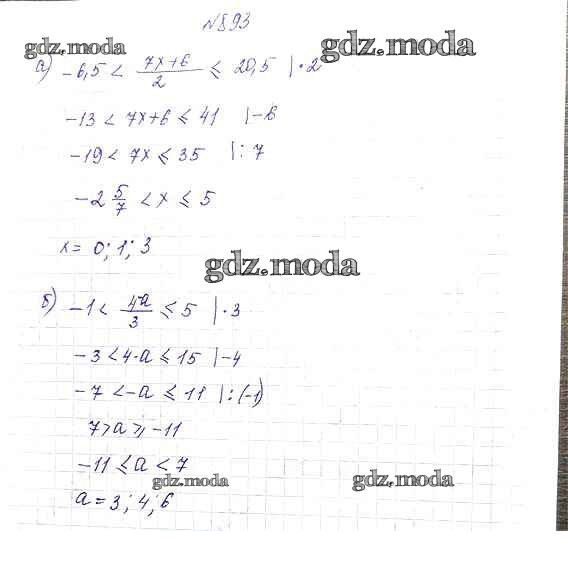 №893
gdz.moda
gdz.moda
а) -6,5 < (7x+6)/2 ≤ 20,5 |·2
-13 < 7x+6 ≤ 41 |-6
-19 < 7x ≤ 35 |: 7
-2 5/7 < x ≤ 5
x = 0; 1; 3
gdz.moda
б) -1 < 4-a/3 ≤ 5 |·3
-3 < 4-a ≤ 15 |-4
-7 < -a ≤ 11 |:(-1)
7 > a ≥ -11
-11 ≤ a < 7
gdz.moda
gdz.moda
a = 3; 4; 6